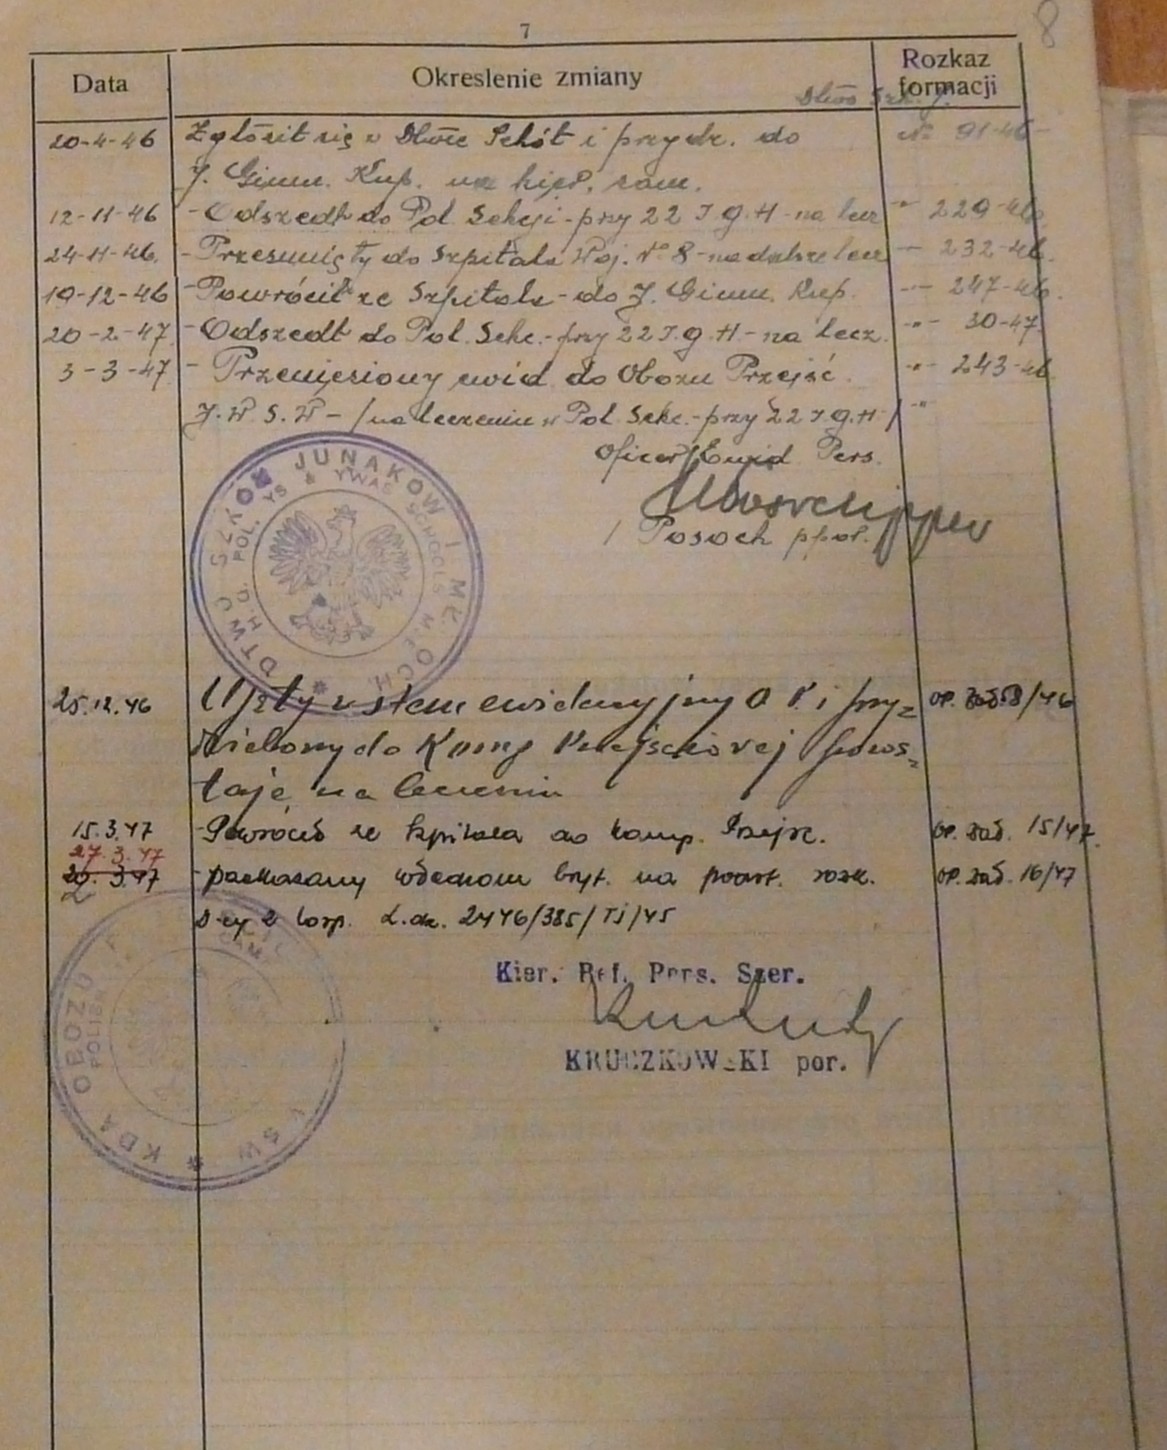 7
8
Data Okreslenie zmiany Rozkaz formacji
Dtwo Szk. J.
20-4-46 Zgłosił się w Dtwie Szkół i przydz. do № 91-46-
J. Gimn. Kup. na kier. sam.
12-11-46 -Odszedł do Pol. Sekcji-przy 22 I.G.H-na lecz -"- 229-46.
24-11-46. -Przesunięty do Szpitala Woj. № 8-na dalsze lecz -"- 232-46.
19-12-46 -Powrócił ze Szpitala-do J. Gimn. Kup. -"- 247-46.
20-2-47. -Odszedł do Pol. Sekc.-przy 22 I.G.H.-na lecz. -"- 30-47.
3-3-47. - Przeniesiony ewid. do Obozu Przejść. -"- 243-46
J.W.S.W-/na leczeniu w Pol. Sekc.-przy 22 I.G.H-/ -"-
Oficer Ewid. Pers.
/ Posoch ppor.
DTWO SZKÓŁ JUNAKÓW I MŁ. OCH.
H.Q. POL. YS & YWAS SCHOOLS M.E.
25.12.46 Ujęty w stan ewidencyjny O.P. i przy= op. zał. 58/46
dzielony do Komp Przejściowej pozos=
taje na leczeniu
15.3.47 -Powrócił ze szpitala do komp. Przejśc. op. zał. 15/47.
27.3.47
20.3.47 -przekazany władzom bryt. na podst. rozk. op. zał. 16/47
D-cy 2 korp. L.dz. 2446/385/TJ/45
Kier. Ref. Pers. Szer.
KRUCZKOWSKI por.
KDA OBOZU SW
POLISH CAMP